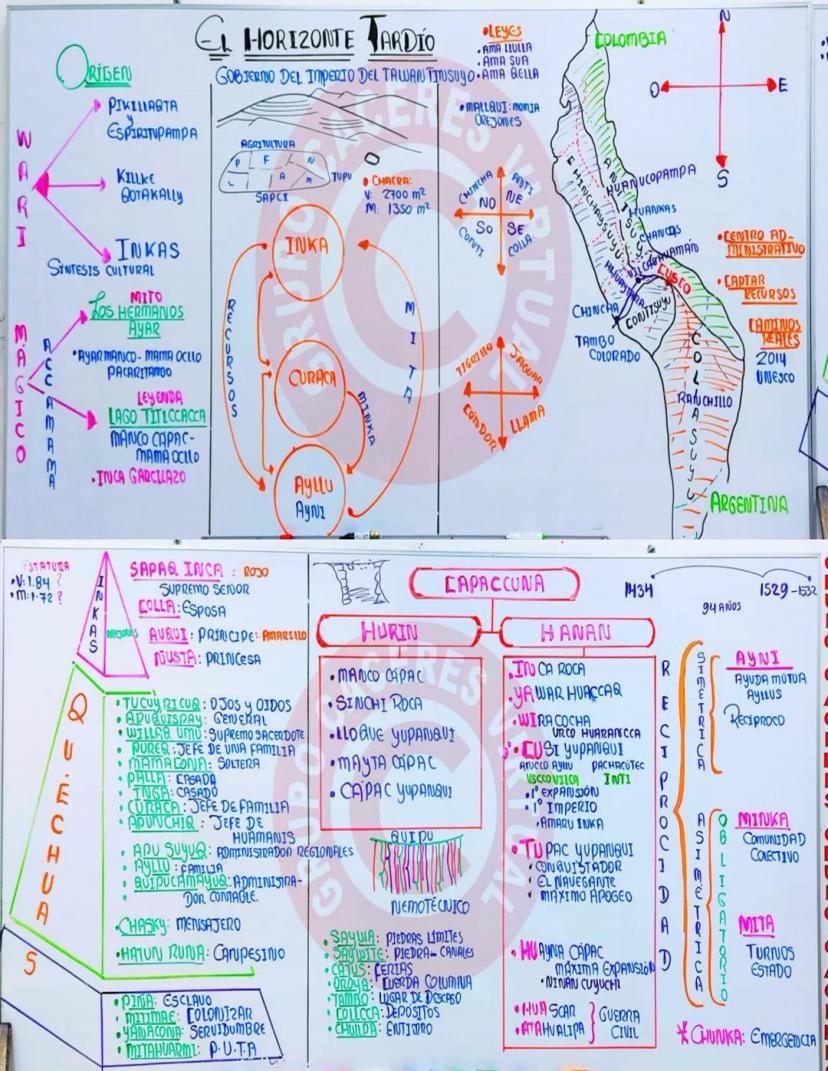 EL HORIZONTE TARDÍO
GOBIERNO DEL IMPERIO DEL TAWANTINSUYO
ORÍGEN
WARI
PIKILLAQTA
Y
ESPIRITUPAMPA
KILLKE
QOTAKALLY
INKAS
SÍNTESIS CULTURAL
MÁGICO
ACCAMAMA
MITO
LOS HERMANOS
AYAR
•AYARMANCO-MAMA OCLLO
PACARITAMBO
LEYENDA
LAGO TITICCACCA
MANCO CÁPAC-
MAMA OCLLO
•INCA GARCILAZO
AGRICULTURA
P F N
L A M
SAPCI
TUPU
•CHACRA:
V: 2700 m²
M: 1350 m²
INKA
RECURSOS
MITA
CURACA
MINKA
AYLLU
AYNI
•LEYES
•AMA LLULLA
•AMA SUA
•AMA QELLA
•MALLQUI: MOMIA
OREJONES
CHINCHA ANTI
NO NE
SO SE
CONTI COLLA
TIGRINO JAGUAR
CÓNDOR LLAMA
COLOMBIA
N
O E
S
CHINCHAYSUYU
ANTISUYU
HUANUCOPAMPA
HUANKAS
CHANCAS
VILCASHUAMÁN
HUAYTARÁ
CUSCO
CONTISUYU
CHINCHA
TAMBO
COLORADO
COLLASUYU
RANCHILLO
ARGENTINA
•CENTRO AD-
MINISTRATIVO
•CAPTAR
RECURSOS
CAMINOS
REALES
2014
UNESCO
ESTATURA
•V: 1.84 ?
•M: 1.72 ?
INKAS
OREJONES
SAPAQ INCA : ROJO
SUPREMO SEÑOR
COLLA: ESPOSA
AURUI: PRÍNCIPE: AMARILLO
ÑUSTA: PRINCESA
QUÉCHUA
S
•TUCUYRICUQ: OJOS Y OIDOS
•APUQUISPAY: GENERAL
•WILLAQ UMU: SUPREMO SACERDOTE
•PUREQ: JEFE DE UNA FAMILIA
•MAMACONA: SOLTERA
•PALLA: CASADA
•INGA: CASADO
•CURACA: JEFE DE FAMILIA
•APUNCHIQ: JEFE DE
HUAMANIS
•APU SUYUQ: ADMINISTRADOR REGIONALES
•AYLLU: FAMILIA
•QUIPUCAMAYUQ: ADMINISTRA-
DOR CONTABLE.
•CHASKY: MENSAJERO
•HATUN RUNA: CAMPESINO
•PIÑA: ESCLAVO
•MITIMAE: COLONIZAR
•YAMACONA: SERVIDUMBRE
•MITAHUARMI: P.U.T.A
CAPACCUNA
HURIN
HANAN
•MANCO CÁPAC
•SINCHI ROCA
•LLOQUE YUPANQUI
•MAYTA CÁPAC
•CÁPAC YUPANQUI
QUIPU
NEMOTÉCNICO
•SAYWA: PIEDRAS LÍMITES
•SAYWITE: PIEDRA-CANALES
•CATUS: FERIAS
•OROYA: CUERDA COLUMNA
•TAMBO: LUGAR DE DSCASO
•COLLCCA: DEPÓSITOS
•CHULPA: ENTIERRO
•INCA ROCA
•YAWAR HUACCAQ
•WIRACOCHA
URCO HUARANCCA
•CUSI YUPANQUI
PACHACÚTEC
USCCOVILCA INTI
•1° EXPANSIÓN
•1° IMPERIO
•AMARU INKA
•TUPAC YUPANQUI
•CONQUISTADOR
•EL NAVEGANTE
•MÁXIMO APOGEO
•HUAYNA CÁPAC
MÁXIMA EXPANSIÓN
•NINAN CUYUCHI
•HUASCAR
•ATAHUALIPA
GUERRA
CIVIL
1434 1529-1532
94 AÑOS
RECIPROCIDAD
SIMETRICA
AYNI
AYUDA MUTUA
AYLLUS
RECÍPROCO
ASIMÉTRICA
OBLIGATORIO
MINKA
COMUNIDAD
COLECTIVO
MITA
TURNOS
ESTADO
*CHUNKA: EMERGENCIA
GRUPO CACERES VIRTUAL
GRUPO CACERES VIRTUAL